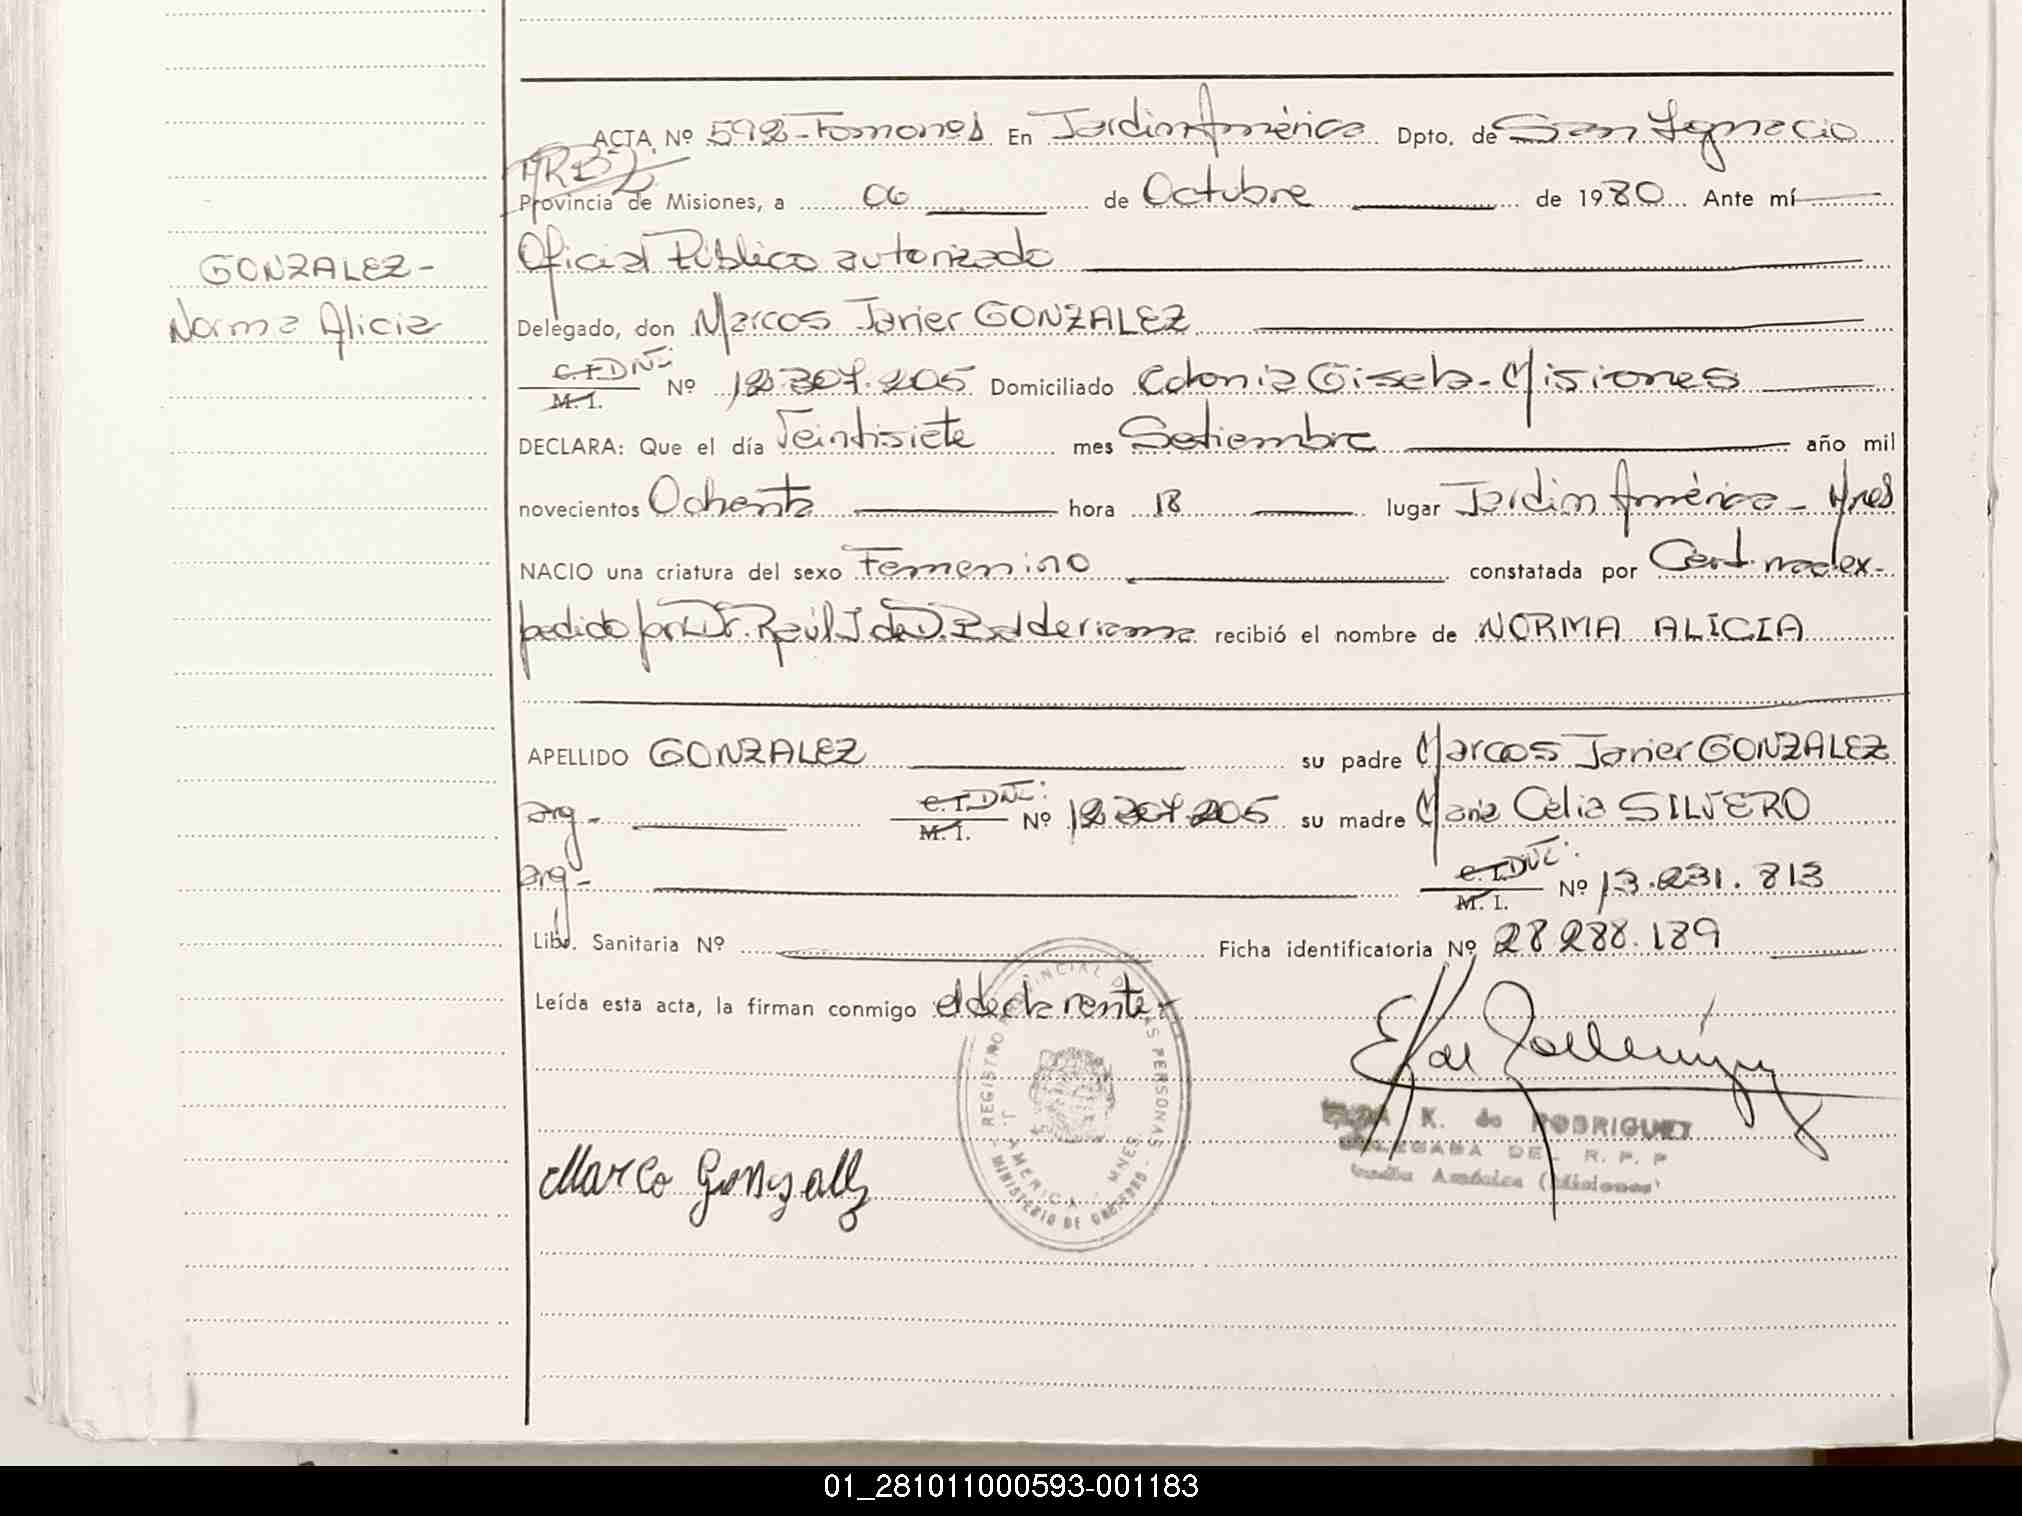 ACTA Nº 592-Tomo nº1 En Jardin América Dpto. de San Ignacio
Provincia de Misiones, a 06 de Octubre de 1980 Ante mí
Oficial Público autorizado
GONZALEZ-
Norma Alicia
Delegado, don Marcos Javier GONZALEZ
C.I. DNI: M. I. Nº 12.307.205 Domiciliado Colonia Gisela-Misiones
DECLARA: Que el día Veintisiete mes Setiembre año mil
novecientos Ochenta hora 18 lugar Jardin América - Mnes
NACIO una criatura del sexo Femenino constatada por Cert. med ex-
pedido por Dr. Raúl J. de D. Balderrama recibió el nombre de NORMA ALICIA
APELLIDO GONZALEZ su padre Marcos Javier GONZALEZ
arg- C.I. DNI: M. I. Nº 12.307.205 su madre Maria Celia SILVERO
arg- C.I. DNI: M. I. Nº 13.231.813
Lib. Sanitaria Nº Ficha identificatoria Nº 28.288.189
Leída esta acta, la firman conmigo el declarante-
REGISTRO PROVINCIAL DE LAS PERSONAS
J. AMERICA - MNES.
MINISTERIO DE GOBIERNO
K. de RODRIGUEZ
DELEGADA DEL R. P. P
Jardín América (Misiones)
Marco Gonzalez
01_281011000593-001183